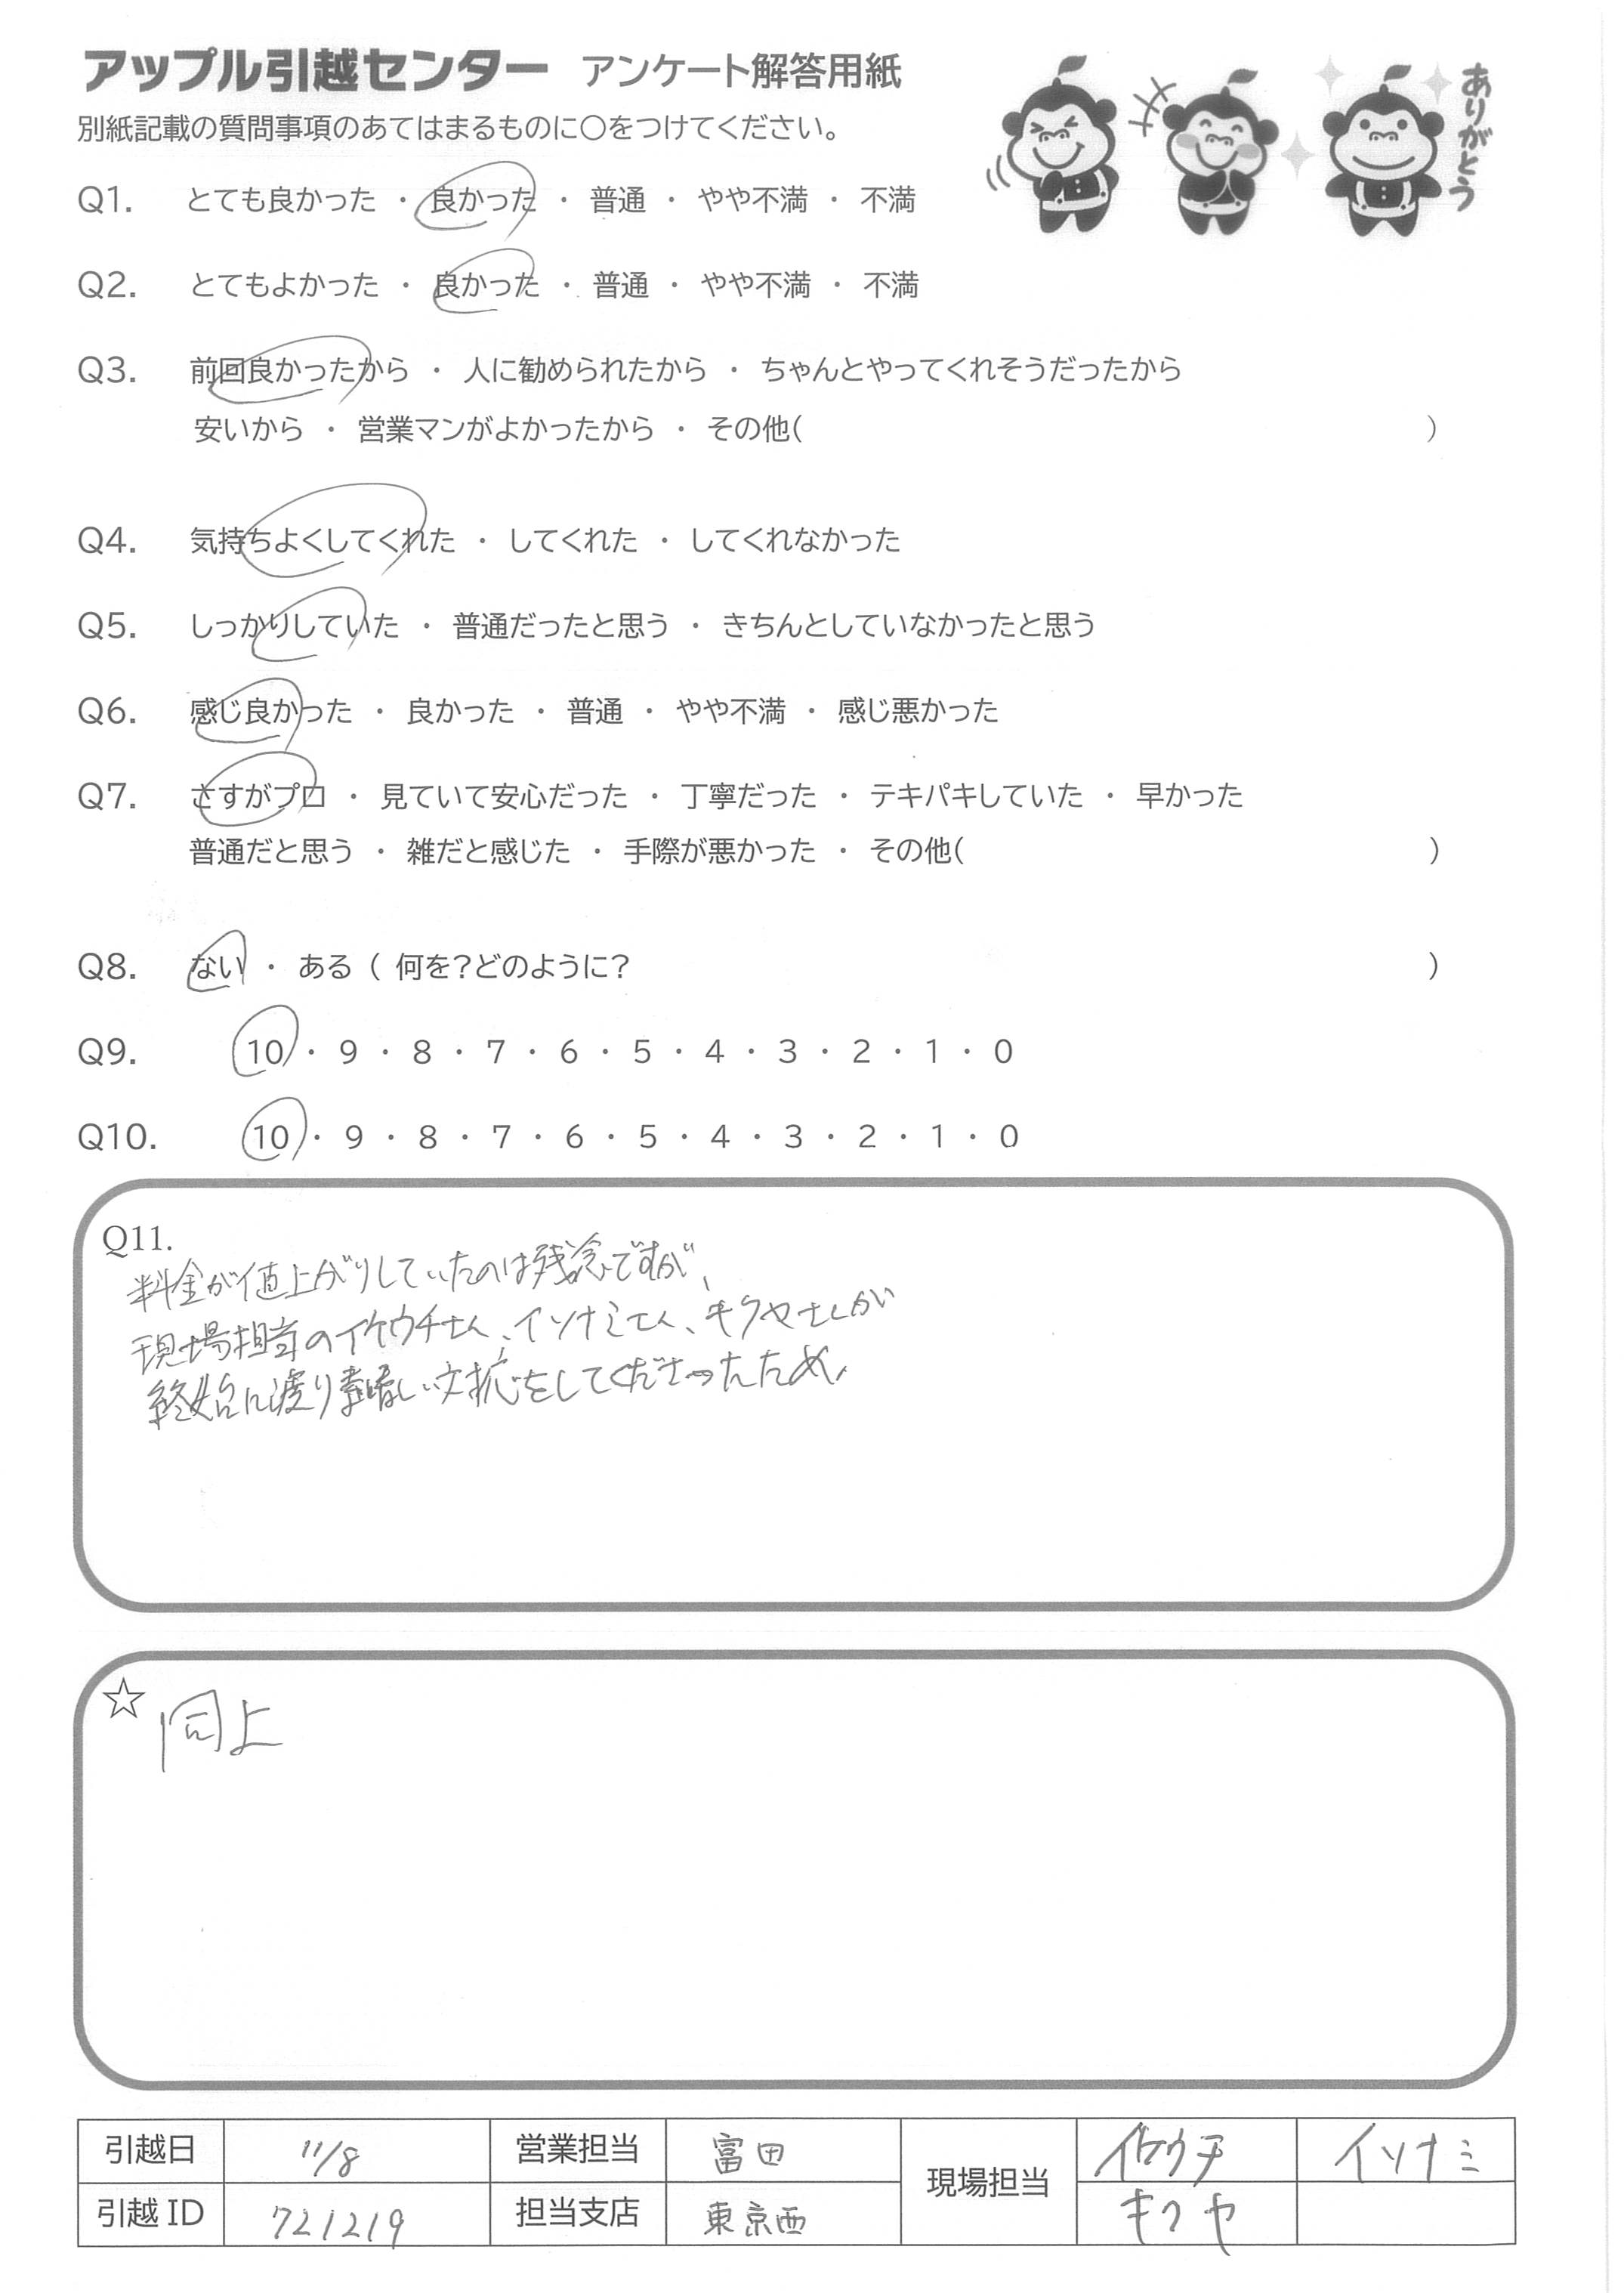 アップル引越センター アンケート解答用紙
ありがとう
別紙記載の質問事項のあてはまるものに○をつけてください。
Q1. とても良かった ・ 良かった ・ 普通 ・ やや不満 ・ 不満
Q2. とてもよかった ・ 良かった ・ 普通 ・ やや不満 ・ 不満
Q3. 前回良かったから ・ 人に勧められたから ・ ちゃんとやってくれそうだったから
安いから ・ 営業マンがよかったから ・ その他( )
Q4. 気持ちよくしてくれた ・ してくれた ・ してくれなかった
Q5. しっかりしていた ・ 普通だったと思う ・ きちんとしていなかったと思う
Q6. 感じ良かった ・ 良かった ・ 普通 ・ やや不満 ・ 感じ悪かった
Q7. さすがプロ ・ 見ていて安心だった ・ 丁寧だった ・ テキパキしていた ・ 早かった
普通だと思う ・ 雑だと感じた ・ 手際が悪かった ・ その他( )
Q8. ない ・ ある ( 何を?どのように? )
Q9. 10 ・ 9 ・ 8 ・ 7 ・ 6 ・ 5 ・ 4 ・ 3 ・ 2 ・ 1 ・ 0
Q10. 10 ・ 9 ・ 8 ・ 7 ・ 6 ・ 5 ・ 4 ・ 3 ・ 2 ・ 1 ・ 0
Q11.
料金が値上がりしていたのは残念ですが、
現場担当のイケウチさん、イソナミさん、キクヤさんが
終始に渡り素晴しい対応をしてくださったため。
☆ 同上
引越日 11/8 営業担当 富田 現場担当 イケウチ イソナミ
引越 ID 721219 担当支店 東京西 キクヤ